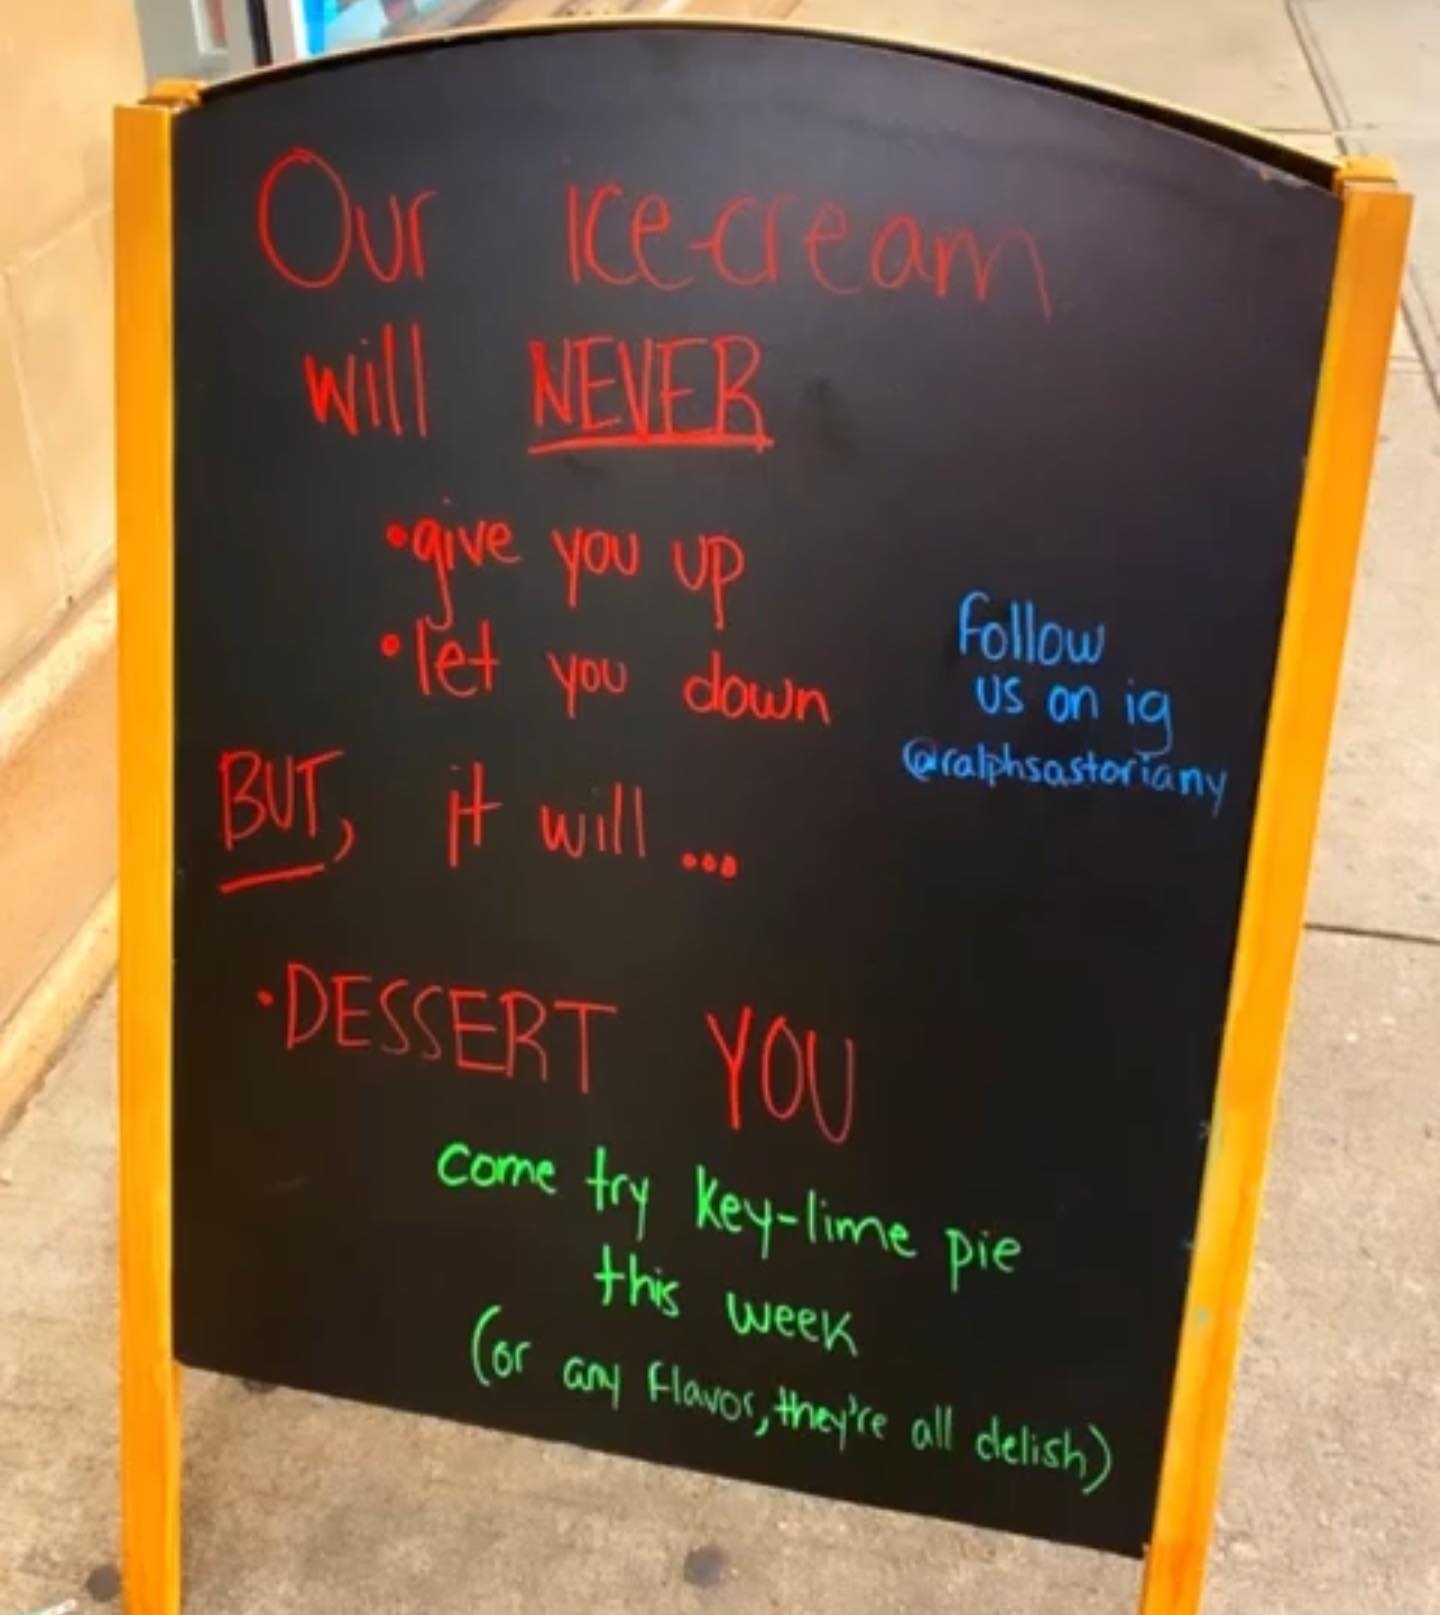 Our ice-cream
will NEVER
•give you up
•let you down
BUT, it will ...
•DESSERT YOU
Follow
us on ig
@ralphsastoriany
come try key-lime pie
this week
(or any flavor, they're all delish)